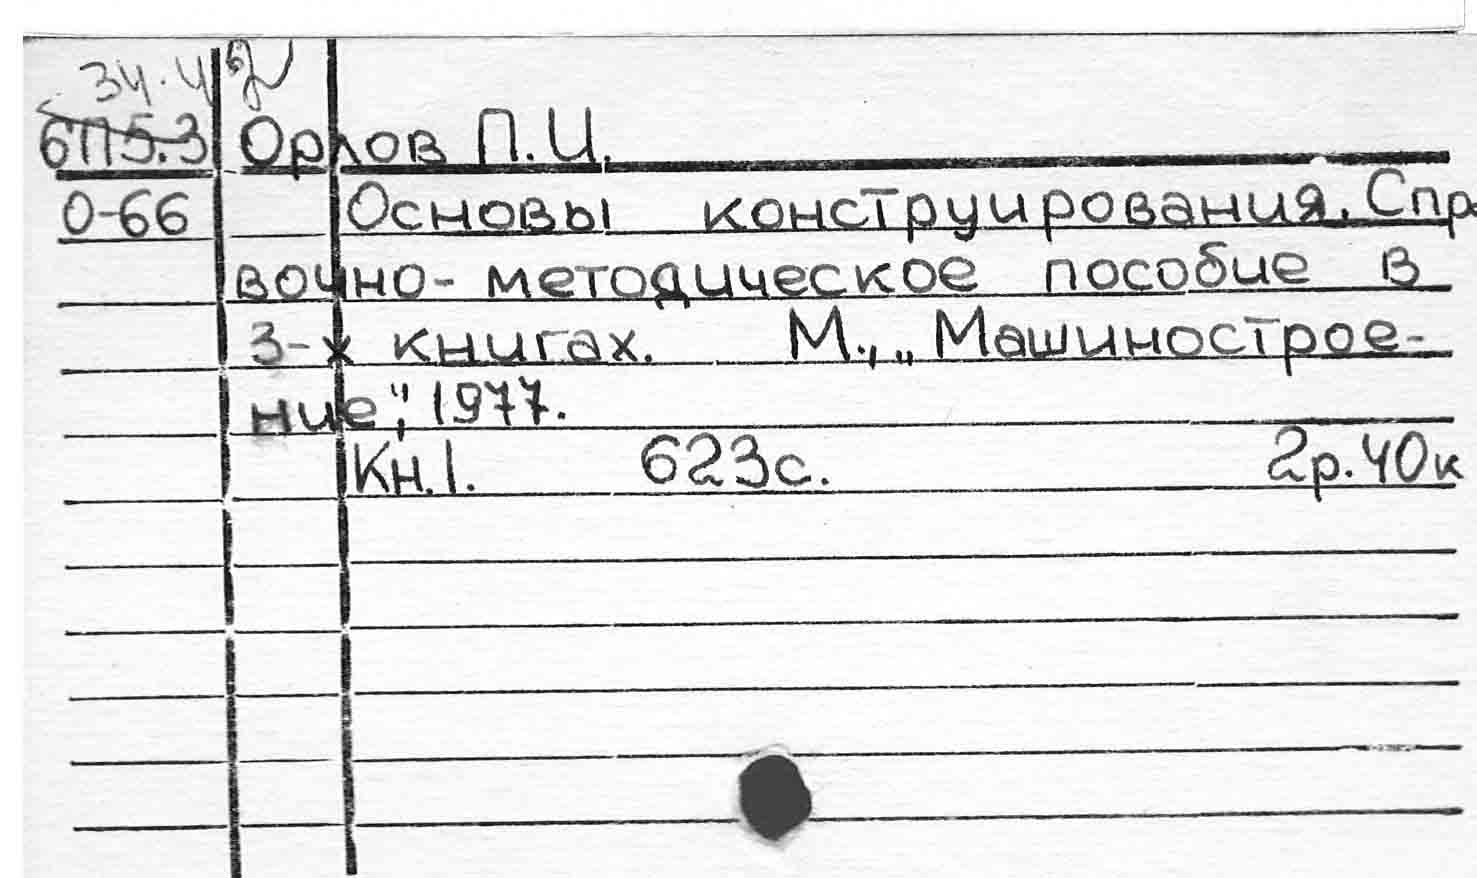 34.42
6П5.3 Орлов П.И.
О-66 Основы конструирования. Спра
вочно-методическое пособие в
3-х книгах. М., „Машинострое-
ние", 1977.
Кн.1. 623с. 2р.40к